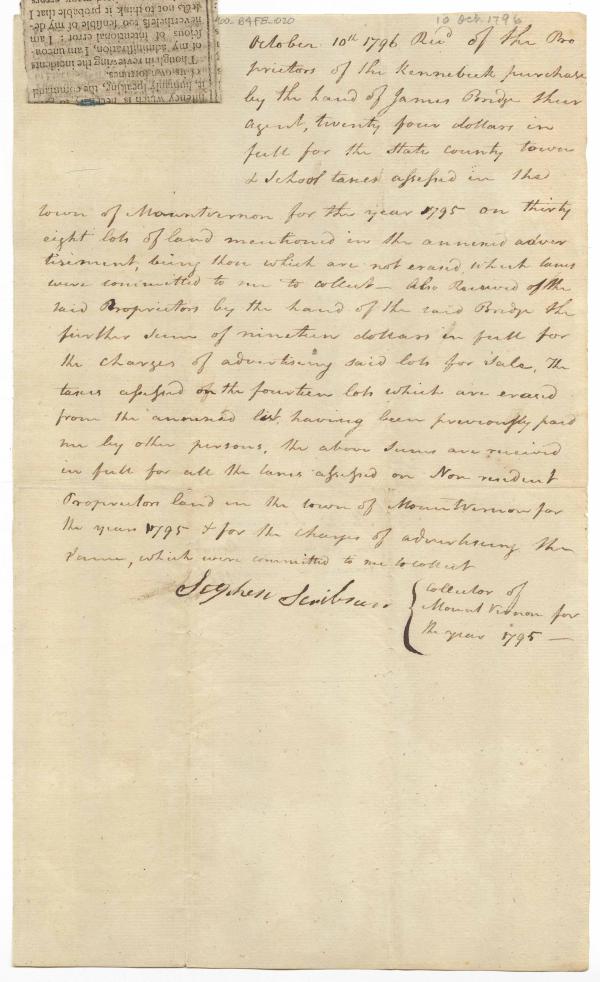 00-84FB-020
10 Oct. 1796
October 10th 1796 Recd of the Pro
prietors of the Kennebeck purchase
by the hand of James Bridge their
Agent, twenty four dollars in
full for the State county town
& School taxes assessed in the
town of Mountvernon for the year 1795 on thirty
eight lots of land mentioned in the annexed adver
tisement, being those which are not erased, which taxes
were committed to me to collect — Also Received of the
said Proprietors by the hand of the said Bridge the
further sum of nineteen dollars in full for
the charges of advertising said lots for sale, The
taxes assessed on the fourteen lots which are erased
from the annexed list, having been previously paid
me by other persons, the above sums are received
in full for all the taxes assessed on Non resident
Proprietors land in the town of Mount Vernon for
the year 1795 & for the charges of advertising the
same, which were committed to me to collect
Stephen Scribner
Collector of
Mount Vernon for
the year 1795 —
is, humanly speaking, the command
of its own fortunes.
Though in reviewing the incidents
of my administration, I am uncon
scious of intentional error: I am
nevertheless too sensible of my de-
fects not to think it probable that I